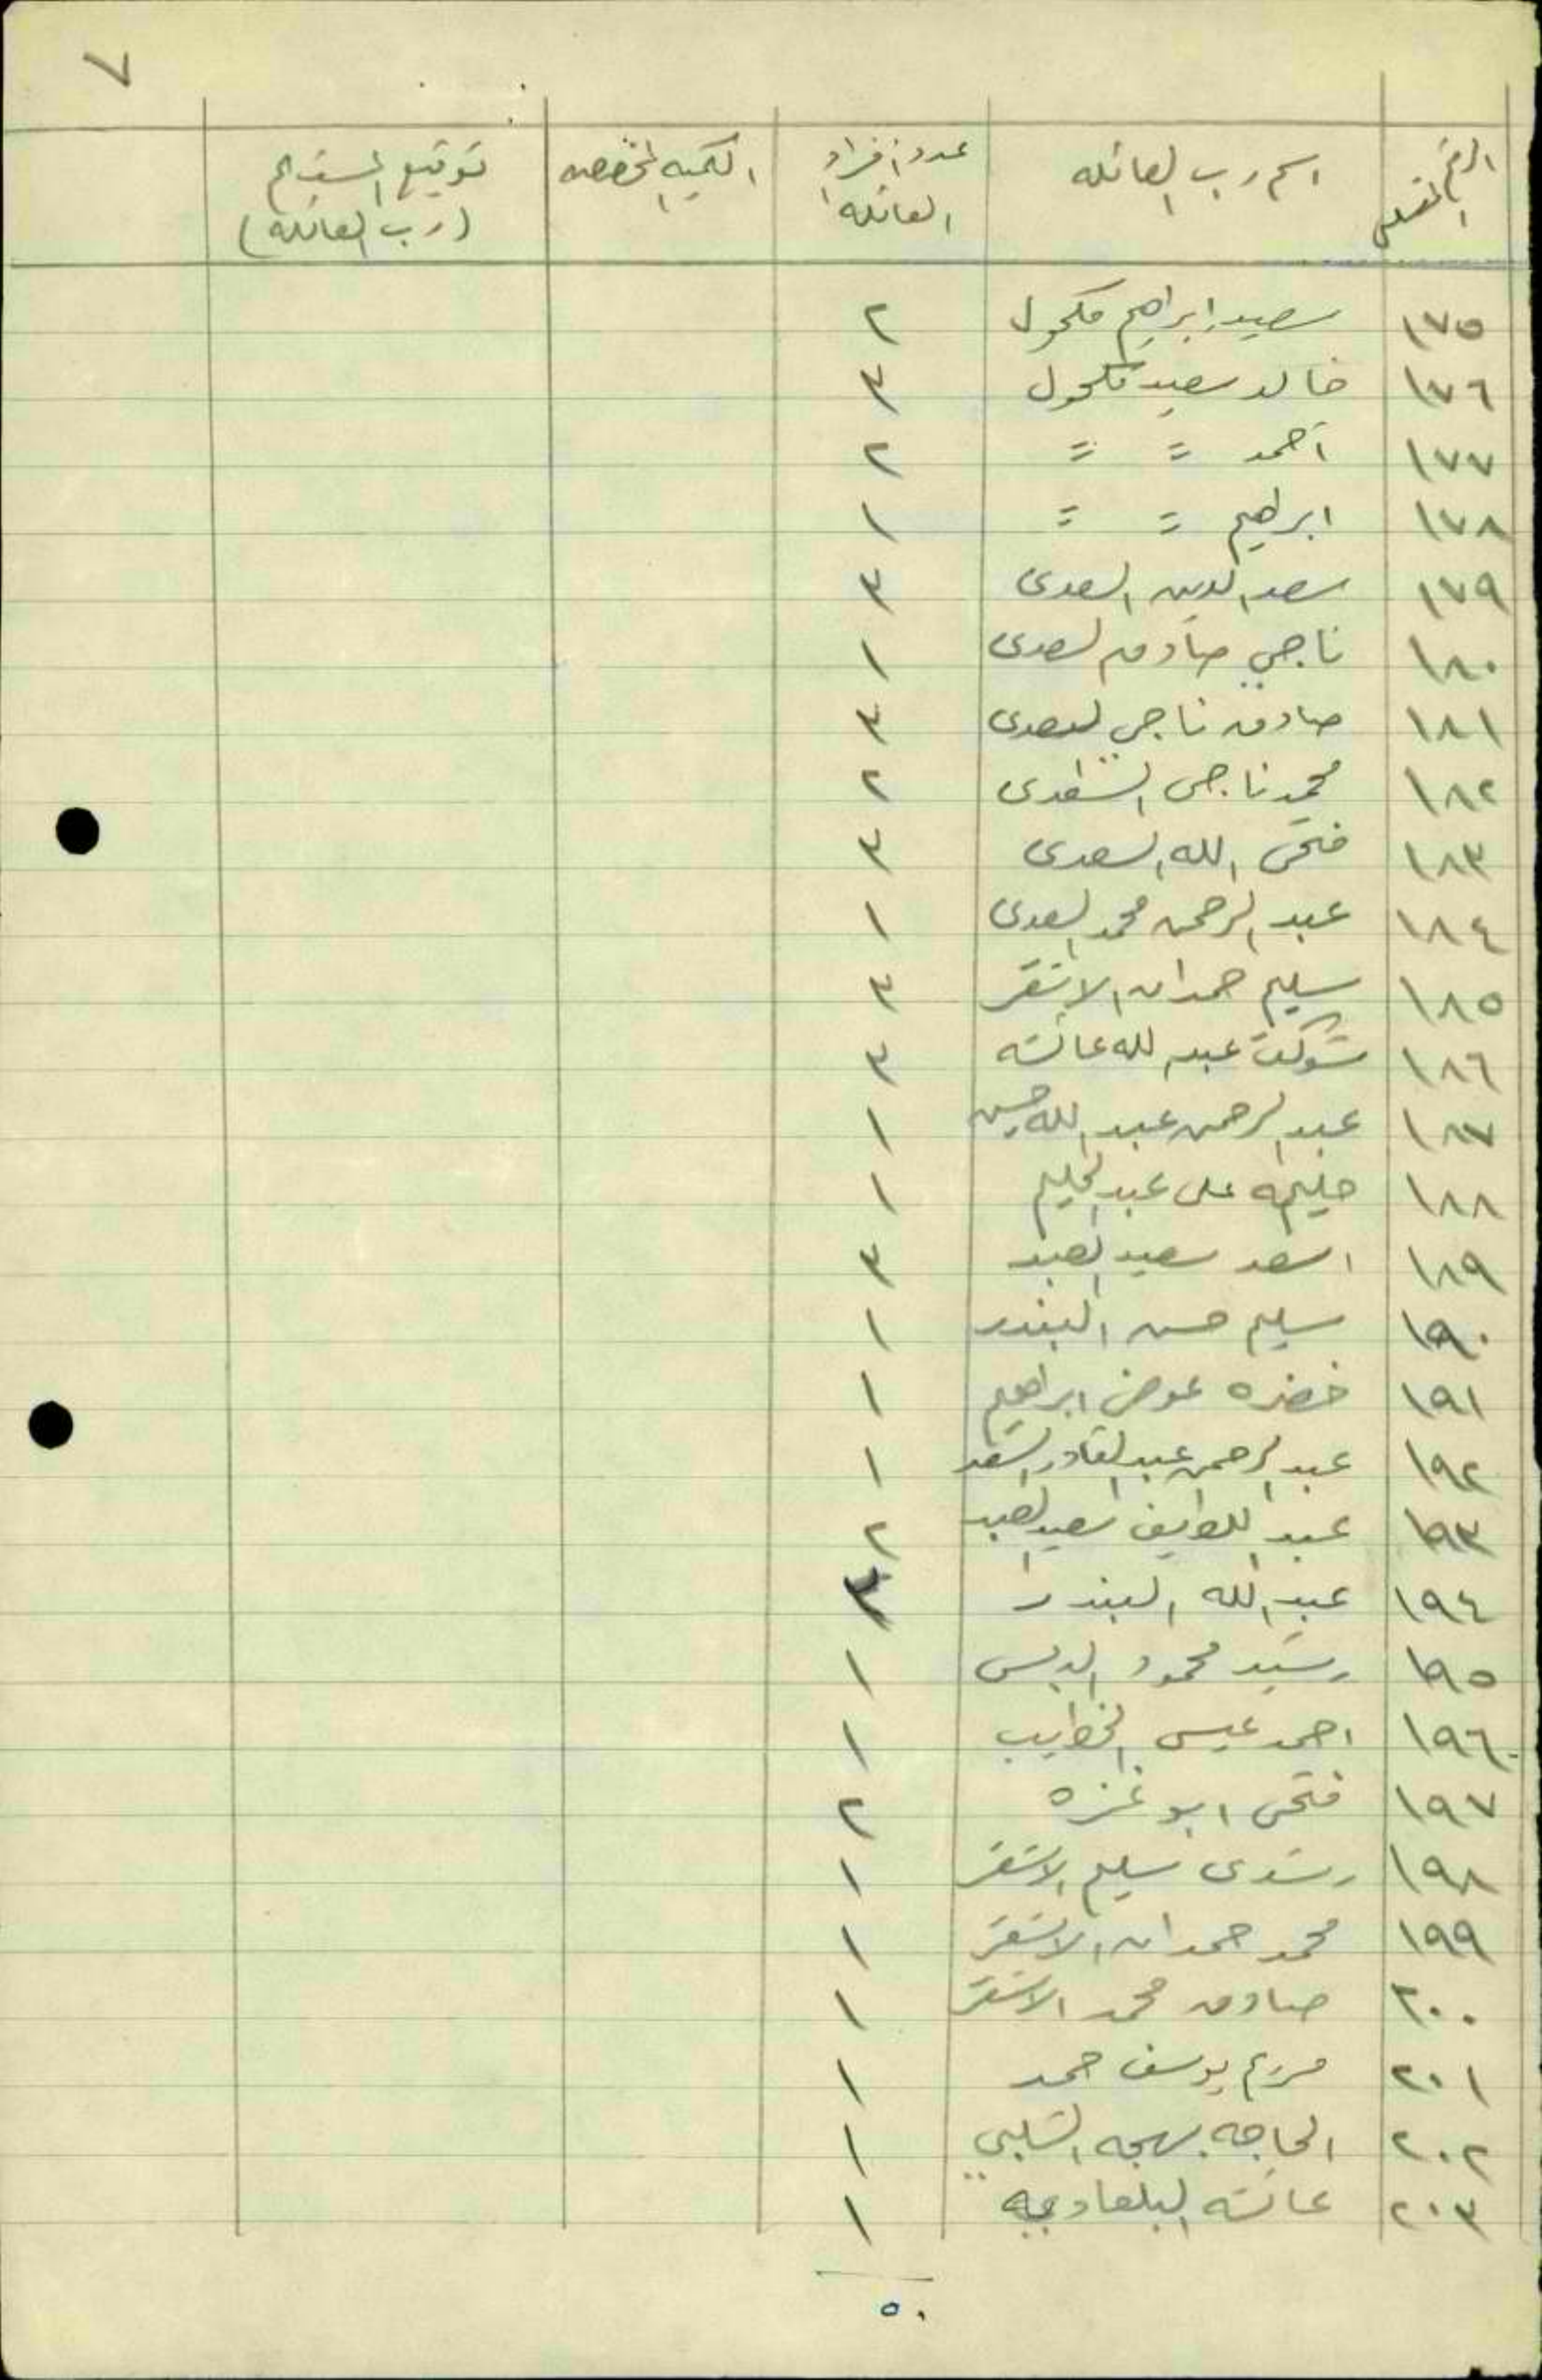 ٧
الرقم المتسلسل | اسم رب العائله | عدد افراد العائله | الكميه المخصصه | توقيع المستلم (رب العائله)
١٧٥ سعيد ابراهيم مكحول ٢
١٧٦ خالد سعيد مكحول ٣
١٧٧ احمد = = ٢
١٧٨ ابراهيم = = ١
١٧٩ سعد الدين السعدى ٣
١٨٠ ناجي صادق السعدى ١
١٨١ صادق ناجي السعدى ٣
١٨٢ محمد ناجى السعدى ٢
١٨٣ فتحى الله السعدى ٣
١٨٤ عبد الرحمن محمد السعدى ١
١٨٥ سليم حمدان الاشقر ٣
١٨٦ شوكت عبد الله عائشه ٣
١٨٧ عبد الرحمن عبد الله حسين ١
١٨٨ حليمه على عبد الحليم ١
١٨٩ اسعد سعيد العبد ٣
١٩٠ سليم حسن البندر ١
١٩١ خضره عوض ابراهيم ١
١٩٢ عبد الرحمن عبد القادر السعد ١
١٩٣ عبد اللطيف سعيد العبد ٢
١٩٤ عبد الله البندر ٣
١٩٥ رشيد محمود الدبس ١
١٩٦ احمد عيسى الخطيب ١
١٩٧ فتحى ابو غزه ٢
١٩٨ رشدى سليم الاشقر ١
١٩٩ محمد حمدان الاشقر ١
٢٠٠ صادق محمد الاشقر ١
٢٠١ مريم يوسف حمد ١
٢٠٢ الحاجه بهجه الشلبي ١
٢٠٣ عائشه البلعاويه ١
٥٠